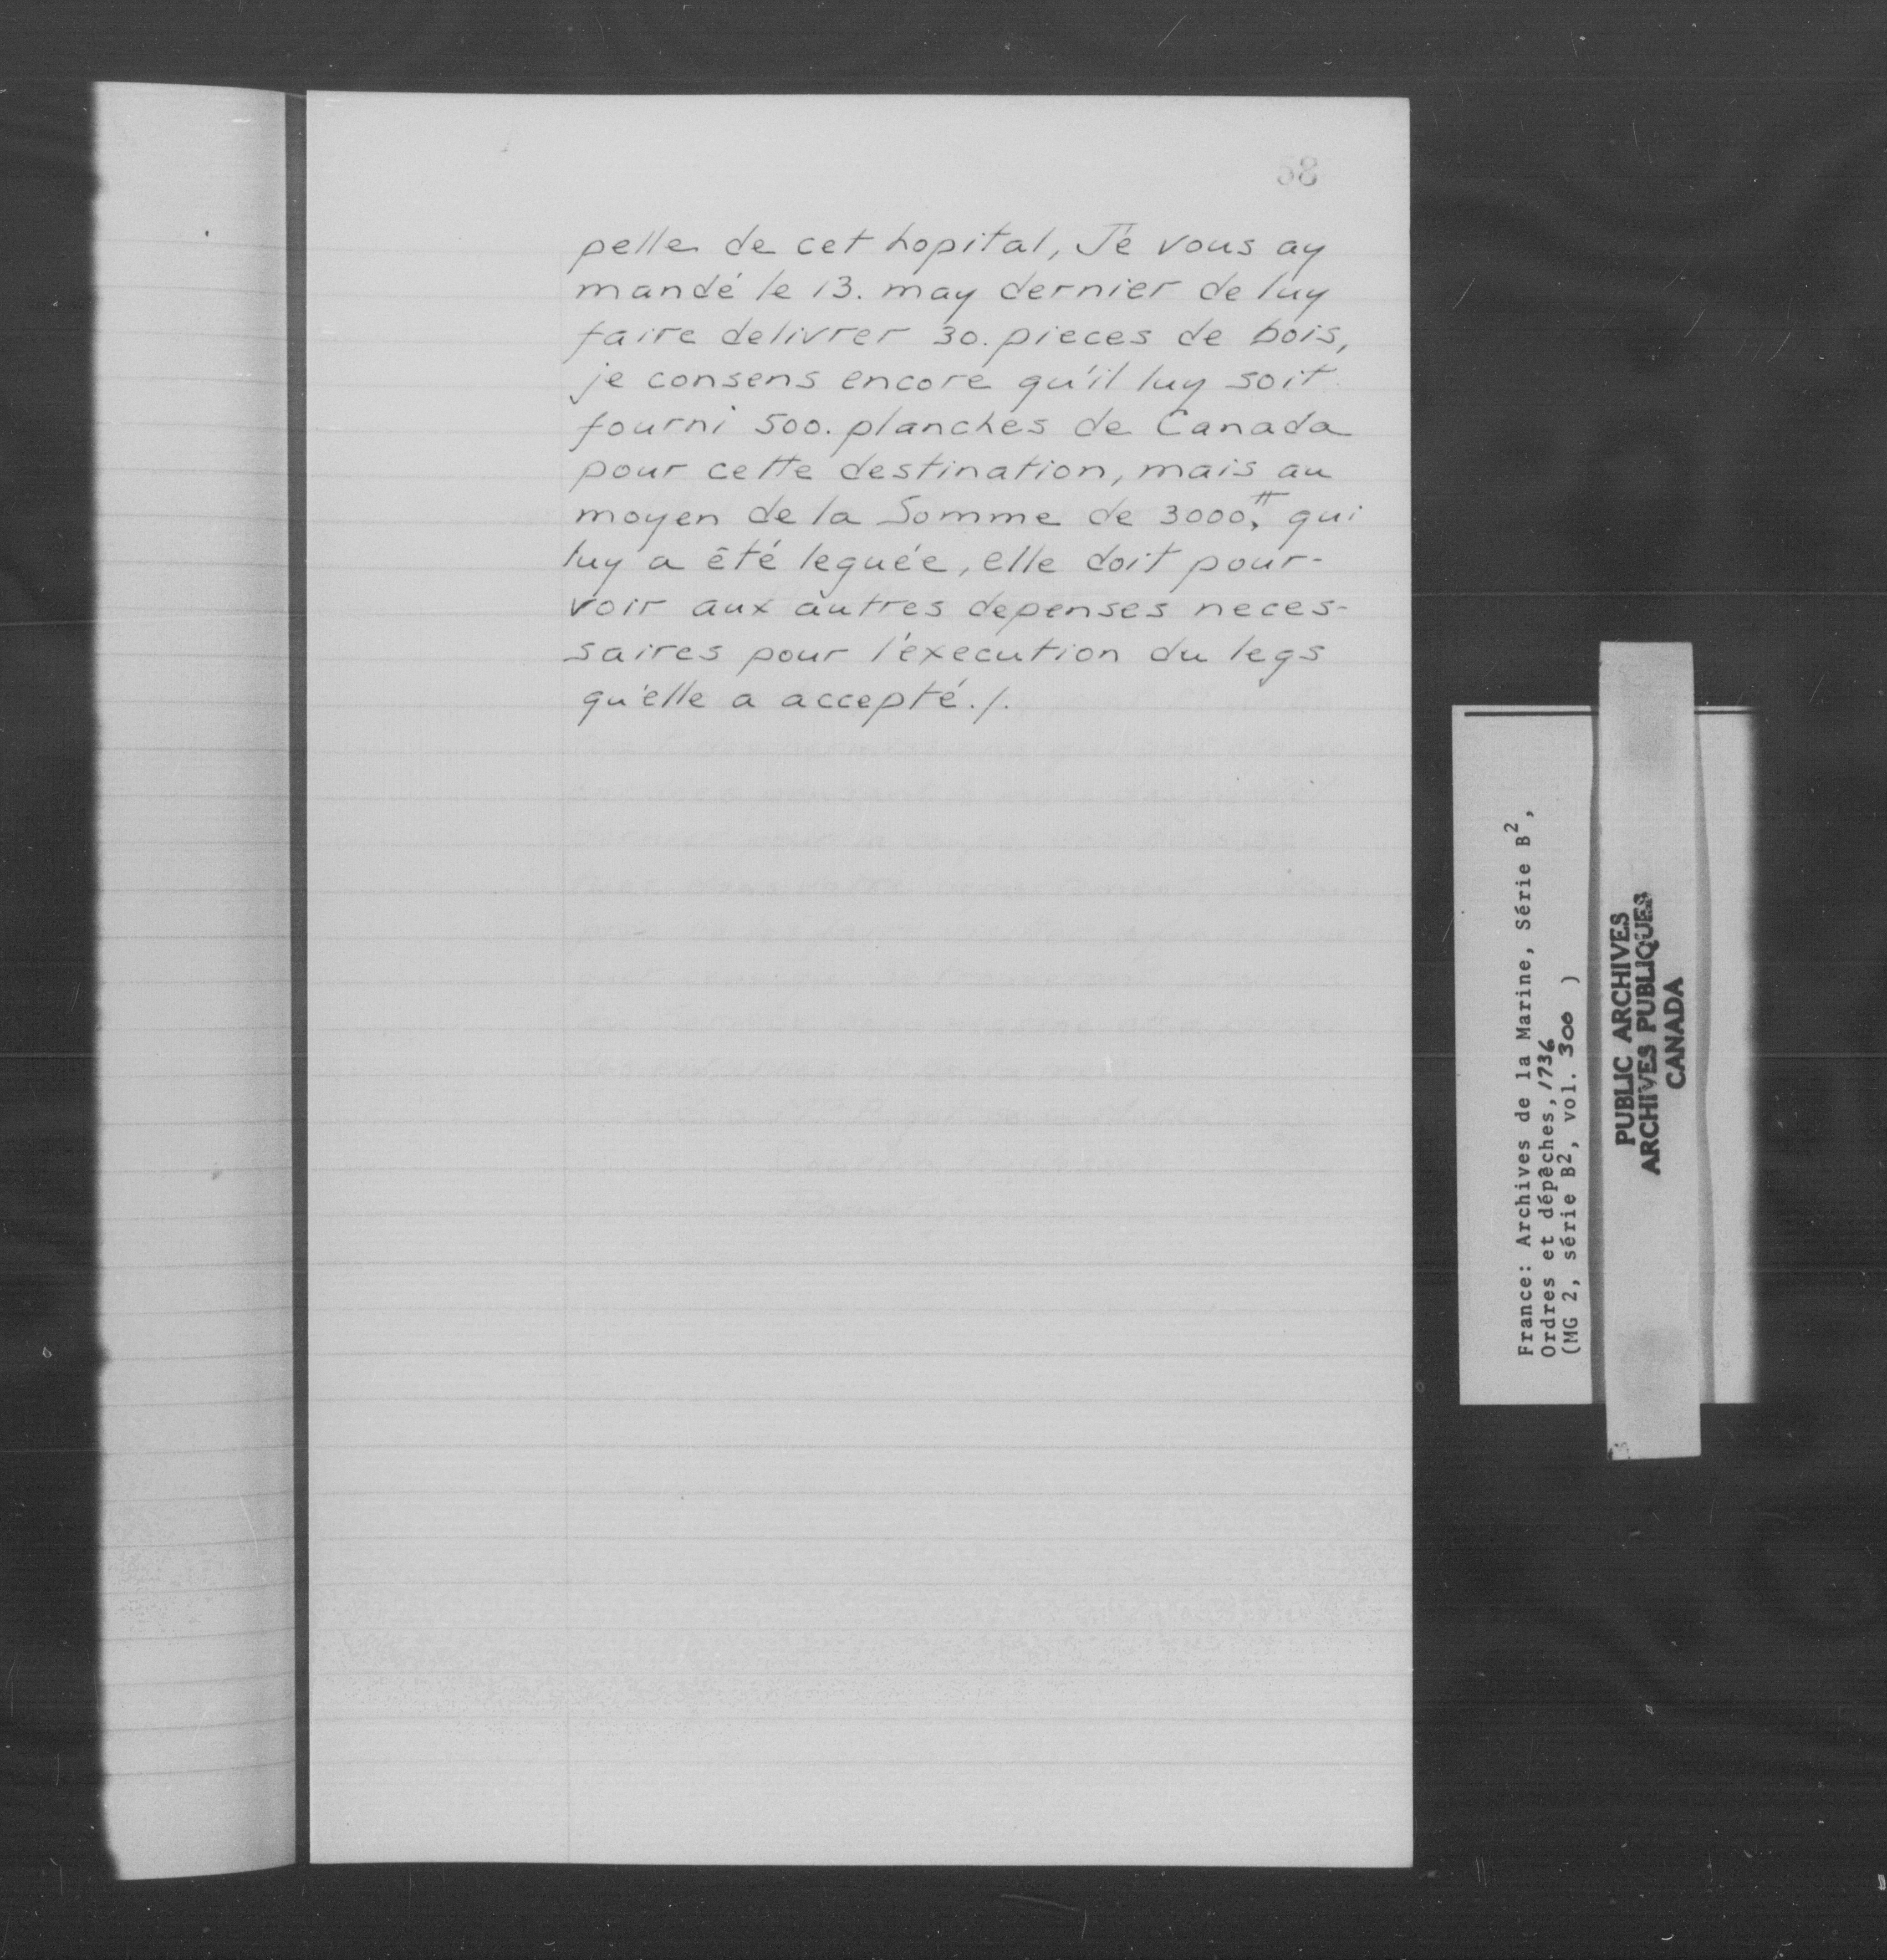 68
pelle de cet hopital, Je vous ay
mandé le 13. may dernier de luy
faire delivrer 30. pieces de bois,
je consens encore qu'il luy soit
fourni 500. planches de Canada
pour cette destination, mais au
moyen de la Somme de 3000.ᵗᵗ qui
luy a été leguée, elle doit pour-
voir aux autres depenses neces-
saires pour l'éxecution du legs
qu'elle a accepté./.
France: Archives de la Marine, Série B²,
Ordres et dépêches, 1736
(MG 2, série B², vol. 300 )
PUBLIC ARCHIVES
ARCHIVES PUBLIQUES
CANADA